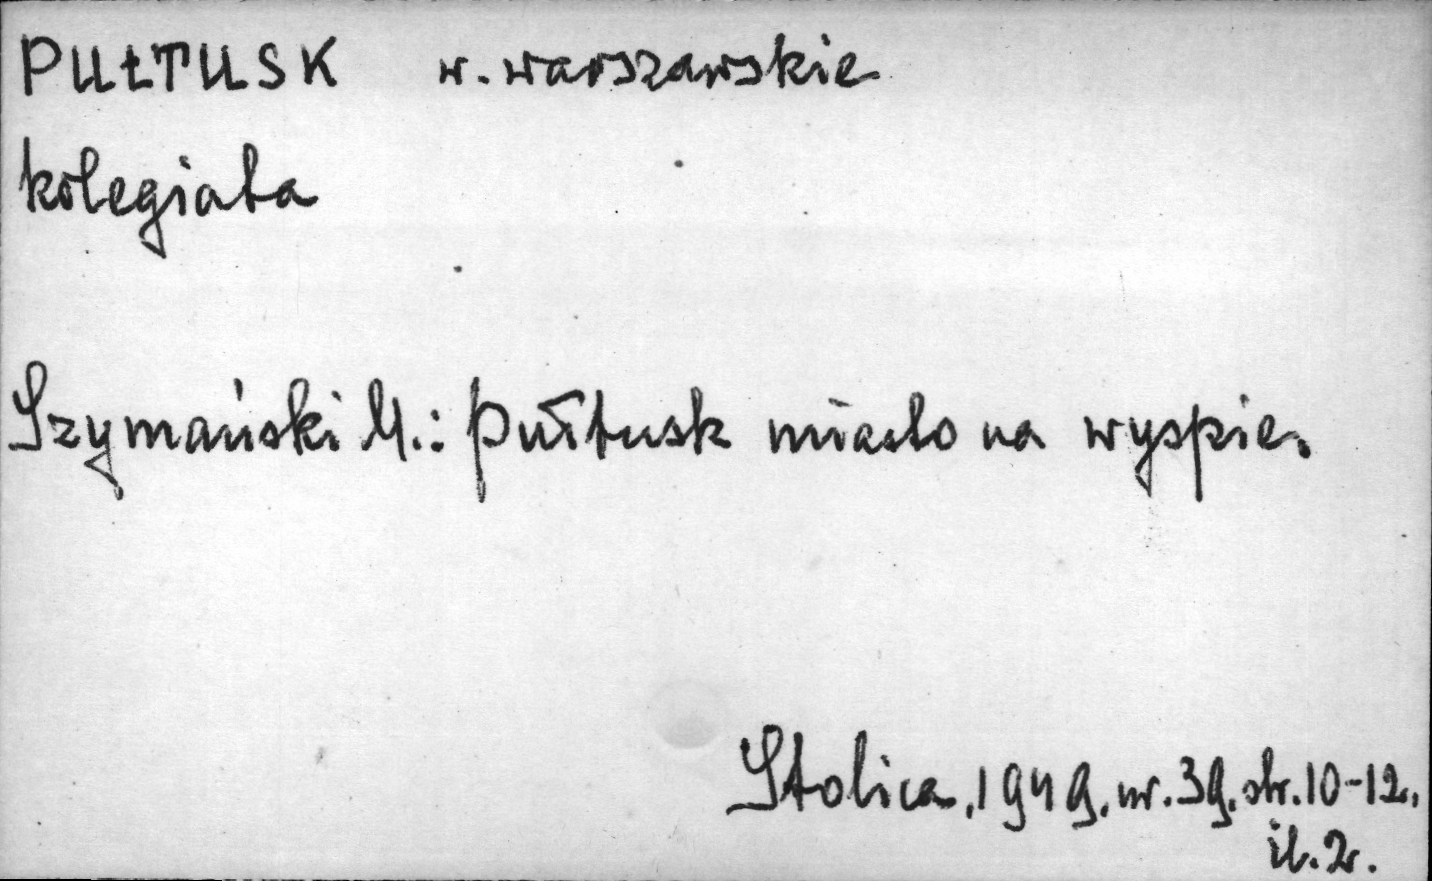 PUŁTUSK w. warszawskie
kolegiata
Szymański M.: Pułtusk miasto na wyspie.
Stolica, 1949, nr. 39, str. 10-12,
il. 2.